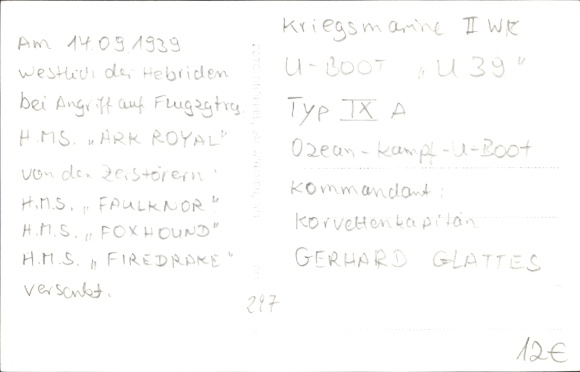 Am 14.09.1939
westlich der Hebriden
bei Angriff auf Flugzgtrg.
H.M.S. „ARK ROYAL"
von den Zerstörern:
H.M.S. „FAULKNOR"
H.M.S. „FOXHOUND"
H.M.S. „FIREDRAKE"
versenkt.
Kriegsmarine II WK
U-BOOT „U 39"
Typ IX A
Ozean-Kampf-U-Boot
Kommandant:
Korvettenkapitän
GERHARD GLATTES
297
12€